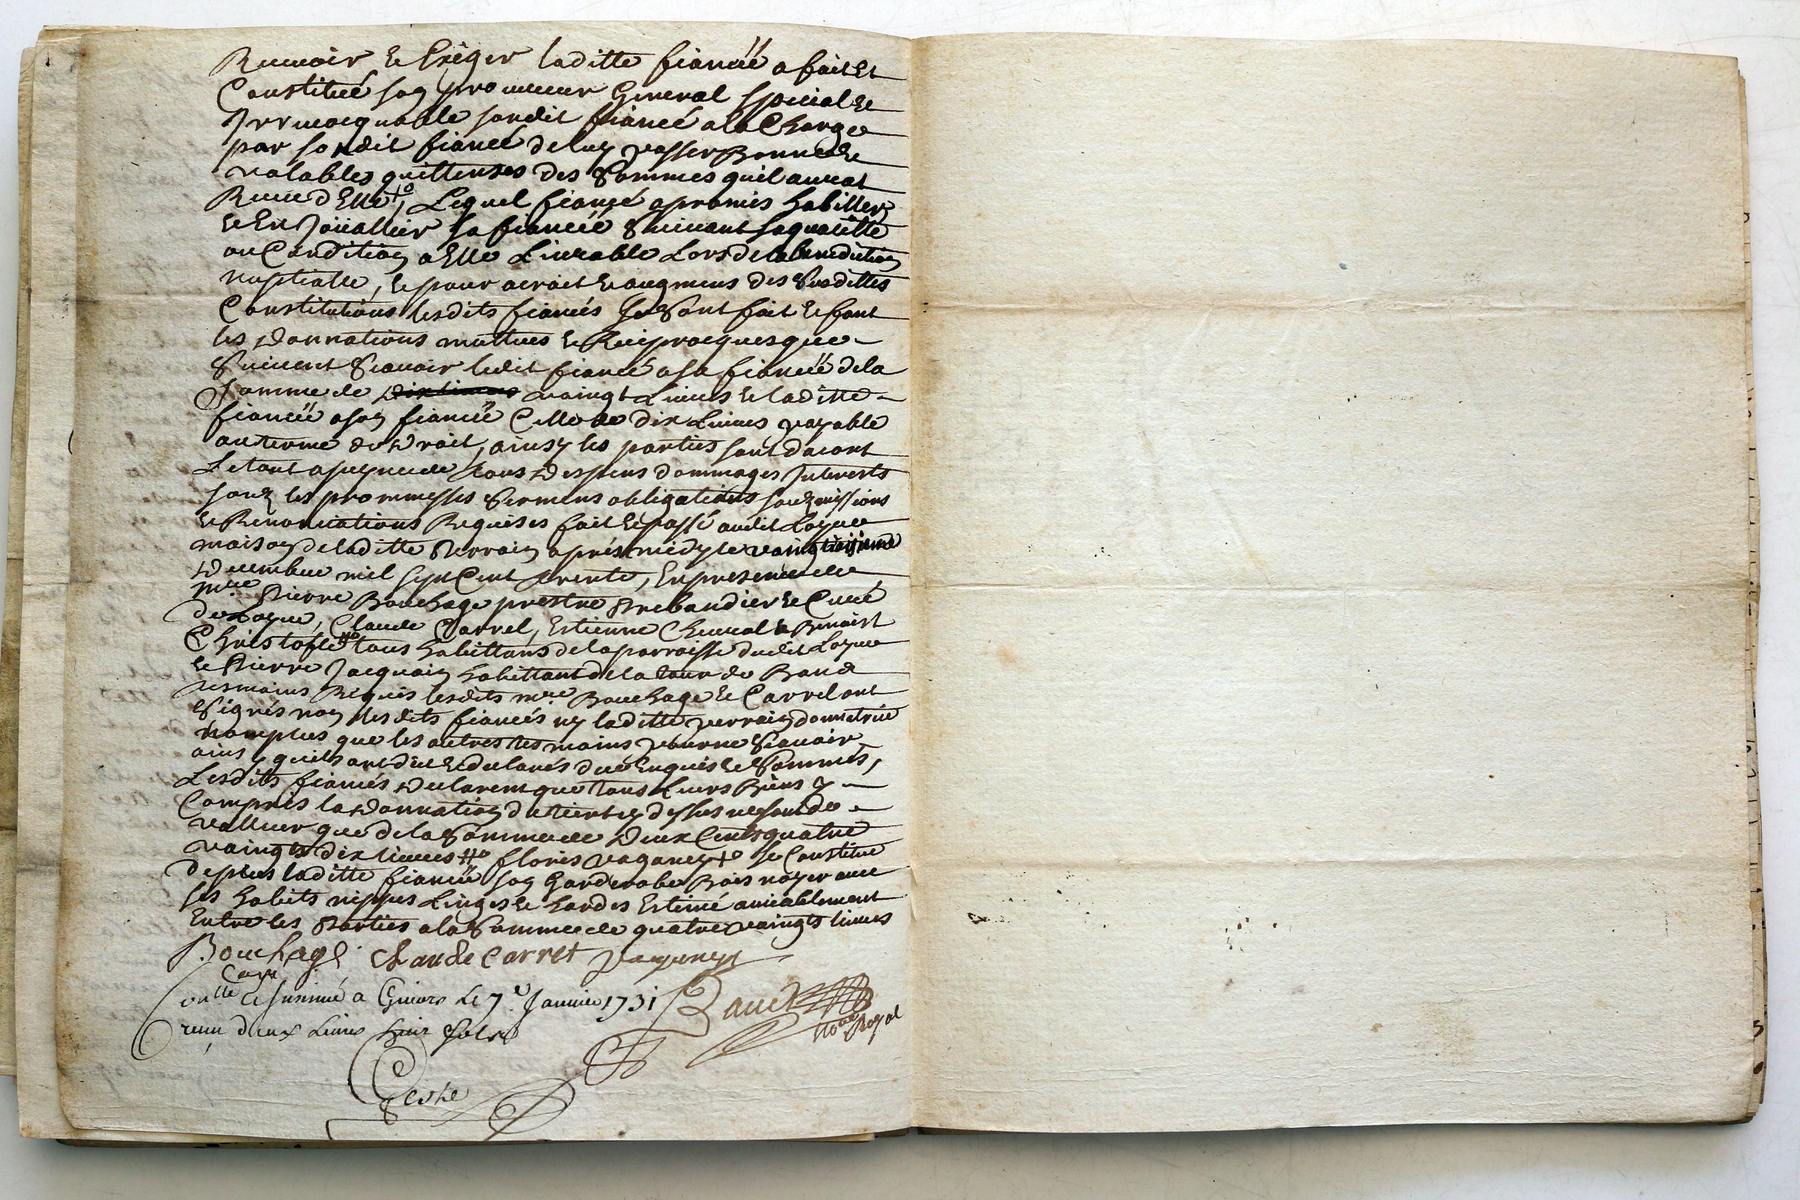 Recevoir et Exiger laditte fiancéé a fait et
Constitué son procureur General special et
Irrevocquable sondit fiancé ala Charge
par sondit fiancé deluy passer Bonne et
valables quittenses des Sommes quil auroat
Receu d'Elle, Lequel fiancé apromis habiller
et En Joüallier sa fiancéé Suivant saqualitté
ou Condition a Elle Livrable Lors de labenediction
nuptialle, et pour acroit et augmens des Susdittes
Constitutions lesdits fiancés se Sont fait et font
les Donnations muttues et Reciprocques que
Suivent Scavoir ledit fiancé a sa fiancéé de la
Somme de vaingt Livres et laditte
fiancéé a son fiancéé Celle de dix Livres payable
au terme de Droit, ainsy les parties sont dacort
Letout apeyne de tous Despens dommages Interests
souz les prommesses sermens obligations souzmissions
et Renonciations Requises fait et passé audit Loyre
maison de laditte Perrain après midy le
Decembre mil sept Cent trente, En presence de
mre Pierre Bouchage prestre Prebandier et Curé
de Loyre, Claude Carrel, Estienne Cheural et Benoist
Christofle tous habittans de laparroisse dudit Loyre
et Pierre Jacquain habittant de la tour de
tesmoins Requis lesdits mre Bouchage et Carrel ont
Signés non lesdits fiancés ny laditte perrain
nomplus que les autres tesmoins pour ne Scavoir
ainsy quils ont dit et declarés de ce Enquis et Sommés,
Lesdits fiancés Declarent que tous Leurs Biens y
Compris la Donnation de tiers cy dessus ne sont de
valleur que de la Somme de Deux Cents quatre
vaingts dix livres se Constitue
de plus laditte fiancéé son Garderobe Bois noyer avec
ses habits nippes Linges et hardes Estimé amiablement
Entre les Parties a la Somme de quatre vaingts livres
Bouchage Claude Carret
Conllé et Insinué a Givors Le 7e Janvier 1731
receu deux Livres huit sols
nore Royal